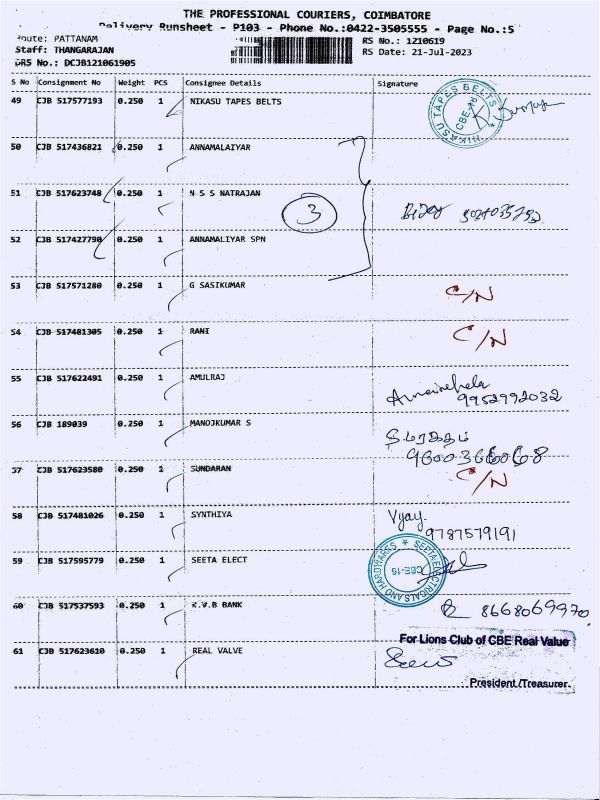 THE PROFESSIONAL COURIERS, COIMBATORE
Delivery Runsheet - P103 - Phone No.:0422-3505555 - Page No.:5
Route: PATTANAM
RS No.: 1210619
Staff: THANGARAJAN
RS Date: 21-Jul-2023
DRS No.: DCJB121061905
S No Consignment No Weight PCS Consignee Details Signature
49 CJB 517577193 0.250 1 NIKASU TAPES BELTS
NIKASU TAPES BELTS CBE-16
50 CJB 517436821 0.250 1 ANNAMALAIYAR
51 CJB 517623748 0.250 1 N S S NATRAJAN
3
52 CJB 517427790 0.250 1 ANNAMALIYAR SPN
53 CJB 517571280 0.250 1 G SASIKUMAR C/N
54 CJB 517481305 0.250 1 RANI C/N
55 CJB 517622491 0.250 1 AMULRAJ
9952992032
56 CJB 189039 0.250 1 MANOJKUMAR S
57 CJB 517623580 0.250 1 SUNDARAN C/N
58 CJB 517481026 0.250 1 SYNTHIYA Vijay.
9787579191
59 CJB 517595779 0.250 1 SEETA ELECT
SEETA ELECTRICALS AND HARDWARES CBE-16
60 CJB 517537593 0.250 1 K.V.B BANK 8668069970
61 CJB 517623610 0.250 1 REAL VALVE
For Lions Club of CBE Real Value
President/Treasurer.